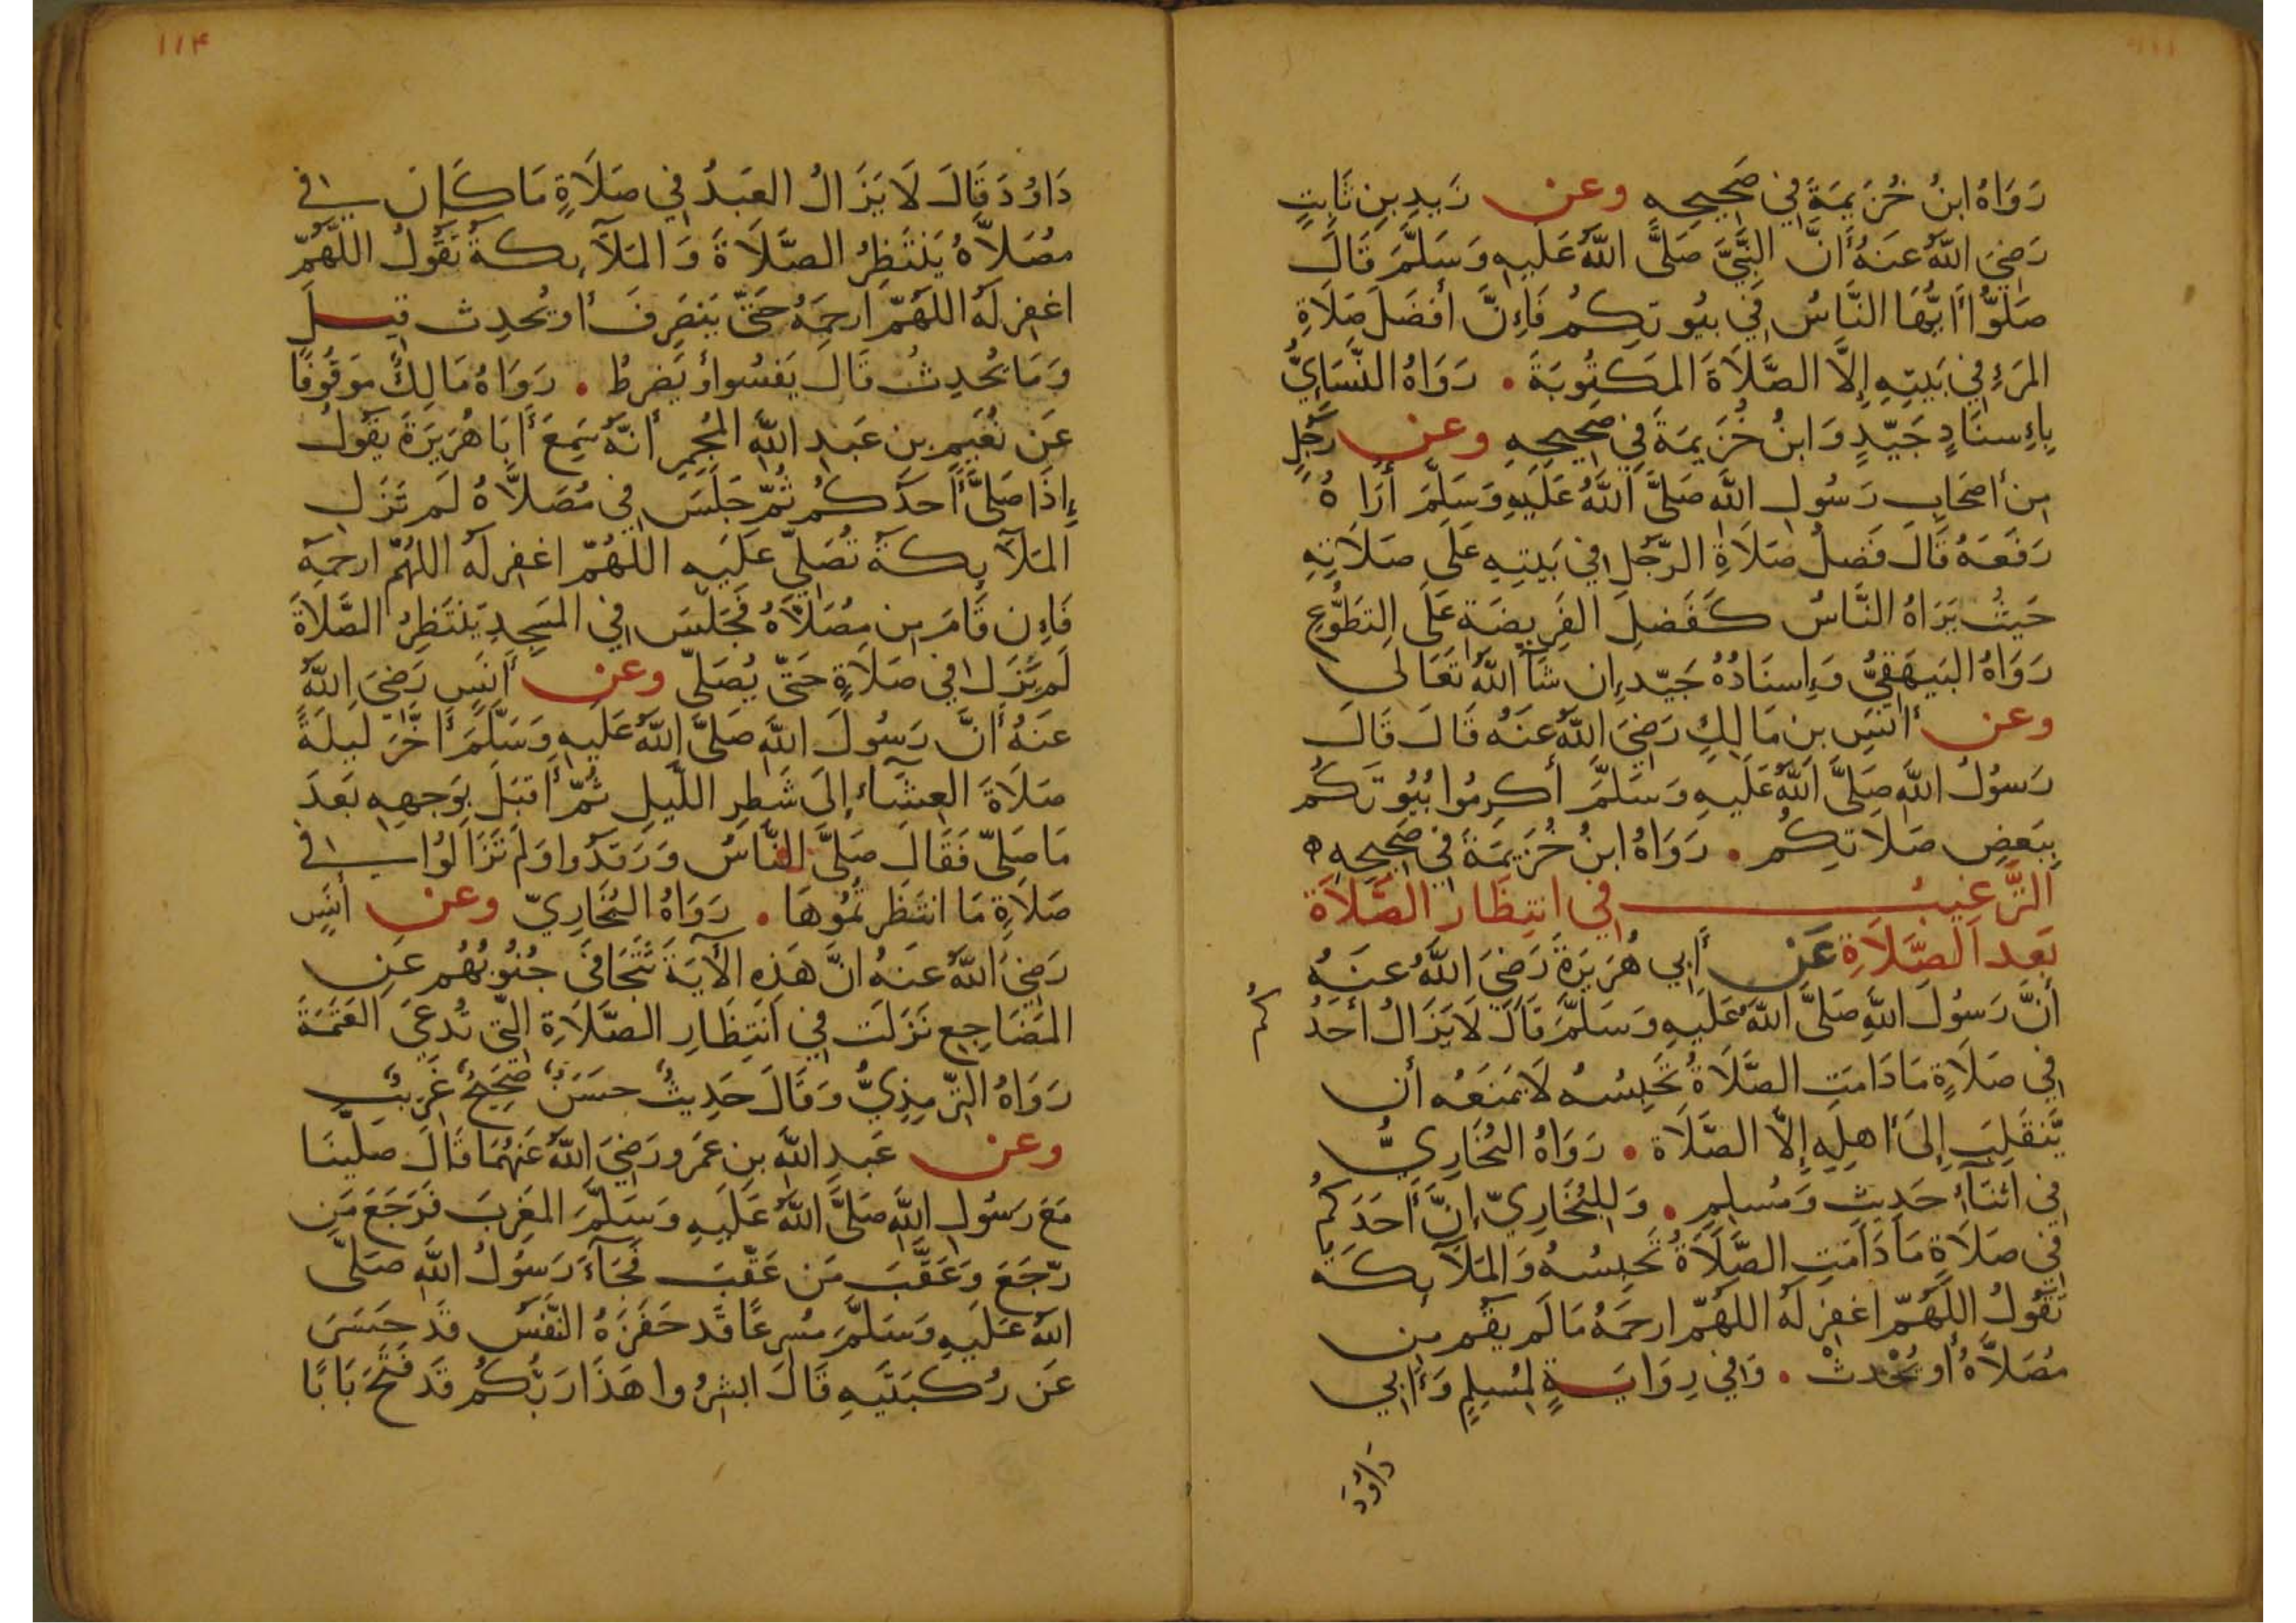 رَوَاهُ ابنُ خُزَيمَةَ فِي صَحِيحِهِ وعن زَيدِ بنِ ثَابِتٍ
رَضِيَ اللهُ عَنهُ أَنَّ النَّبِيَّ صَلَّى اللهُ عَلَيهِ وَسَلَّمَ قَالَ
صَلُّوا أَيُّهَا النَّاسُ فِي بُيُوتِكُم فَإِنَّ أَفضَلَ صَلَاةِ
المَرءِ فِي بَيتِهِ إِلَّا الصَّلَاةَ المَكتُوبَةَ . رَوَاهُ النَّسَايِيُّ
بِإِسنَادٍ جَيِّدٍ وَابنُ خُزَيمَةَ فِي صَحِيحِهِ وعن رَجُلٍ
مِن أَصحَابِ رَسُولِ اللهِ صَلَّى اللهُ عَلَيهِ وَسَلَّمَ أُرَاهُ
رَفَعَهُ قَالَ فَضلُ صَلَاةِ الرَّجُلِ فِي بَيتِهِ عَلَى صَلَاتِهِ
حَيثُ يَرَاهُ النَّاسُ كَفَضلِ الفَرِيضَةِ عَلَى التَّطَوُّعِ
رَوَاهُ البَيهَقِيُّ وَإِسنَادُهُ جَيِّد إِن شَآ اللهُ تَعَالَى
وعن أَنَسِ بنِ مَالِكٍ رَضِيَ اللهُ عَنهُ قَالَ قَالَ
رَسُولُ اللهِ صَلَّى اللهُ عَلَيهِ وَسَلَّمَ أَكرِمُوا بُيُوتَكُم
بِبَعضِ صَلَاتِكُم . رَوَاهُ ابنُ خُزَيمَةَ فِي صَحِيحِهِ ه
التَّرغيبُ في انتِظَارِ الصَّلَاةِ
بَعدَ الصَّلَاةِ عَن أَبِي هُرَيرَةَ رَضِيَ اللهُ عَنهُ
أَنَّ رَسُولَ اللهِ صَلَّى اللهُ عَلَيهِ وَسَلَّمَ قَالَ لَا يَزَالُ أَحَدُكُم
فِي صَلَاةٍ مَا دَامَتِ الصَّلَاةُ تَحبِسُهُ لَا يَمنَعُه أَن
يَّنقَلِبَ إِلَى أَهلِهِ إِلَّا الصَّلَاة . رَوَاهُ البُخَارِيُّ
فِي اثنَآءِ حَدِيثٍ وَمُسلِم . وَلِلبُخَارِيِّ إِنَّ أَحَدَكُم
فِي صَلَاةٍ مَا دَامَتِ الصَّلَاةُ تَحبِسُهُ وَالمَلَآيِكَة
تَقُولُ اللّهُمَّ اغفِر لَهُ اللّهُمَّ ارحَمهُ مَا لَم يَقُم مِن
مُصَلَّاهُ أَو يُحْدثْ . وَفِي رِوَايَةٍ لِمُسلِمٍ وَأَبِي
دَاوُدَ
١١٤
دَاوُدَ قَالَ لَا يَزَالُ العَبدُ فِي صَلَاةٍ مَا كَانَ فِي
مُصَلَّاهُ يَنتَظِرُ الصَّلَاةَ وَالمَلَآيِكَةُ تَقُولُ اللّهُمَّ
اغفِر لَهُ اللّهُمَّ ارحَمهُ حَتَّى يَنصَرِفَ أَو يُحدِث قِيلَ
وَمَا يُحدِثُ قَالَ يَفسُوا أَو يَضرِطُ . رَوَاهُ مَالِكٌ مَوقُوفًا
عَن نُعَيمِ بن عَبدِ اللهِ المُجمِرِ أَنَّهُ سَمِعَ أَبَا هُرَيرَةَ يَقُولُ
إِذَا صَلَّى أَحَدُكُم ثُمَّ جَلَسَ فِي مُصَلَّاهُ لَم تَزَلِ
المَلَآيِكَةُ تُصَلِّي عَلَيهِ اللّهُمَّ اغفِر لَهُ اللّهُمَّ ارحَمهُ
فَإِن قَامَ مِن مُصَلَّاهُ فَجَلَسَ فِي المَسجِدِ يَنتَظِرُ الصَّلَاةَ
لَم يَزَل فِي صَلَاةٍ حَتَّى يُصَلِّي وعن أَنَسٍ رَضِيَ اللهُ
عَنهُ أَنَّ رَسُولَ اللهِ صَلَّى اللهُ عَلَيهِ وَسَلَّمَ أَخَّرَ لَيلَةً
صَلَاةَ العِشَآء إِلَى شَطرِ اللَّيلِ ثُمَّ أَقبَلَ بِوَجهِهِ بَعدَ
مَا صَلَّى فَقَالَ صَلَّى النَّاسُ وَرَقَدُوا وَلَم تَزَالُوا فِي
صَلَاةٍ مَا انتَظَرتُمُوهَا . رَوَاهُ البُخَارِيّ وعن أَنَسٍ
رَضِيَ اللهُ عَنهُ انَّ هَذِهِ الآيَةَ تَتَجَافَى جُنُوبُهُم عَنِ
المَضَاجِعِ نَزَلَت فِي انتِظَارِ الصَّلَاةِ الَّتِي تُدعَى العَتَمَةَ
رَوَاهُ التِّرمِذِيُّ وَقَالَ حَدِيثٌ حسَنٌ صَحِيحٌ غَرِيبٌ
وعن عَبدِ اللهِ بنِ عَمرٍو رَضِيَ اللهُ عَنهُمَا قَالَ صَلَّينَا
مَعَ رَسُولِ اللهِ صَلَّى اللهُ عَلَيهِ وَسَلَّمَ المَغرِبَ فَرَجَعَ مَن
رَّجَعَ وَعَقَّبَ مَن عَقَّبَ فَجَآءَ رَسُولُ اللهِ صَلَّى
اللهُ عَلَيهِ وَسَلَّمَ مُسرِعًا قَد حَفَزَهُ النَّفَسُ قَد حَسَرَ
عَن رُكبَتَيهِ قَالَ ابشِرُوا هَذَا رَبُّكُم قَد فَتَحَ بَابًا